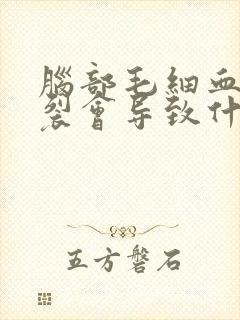 腦部毛細血
裂會导致什
五方磐石